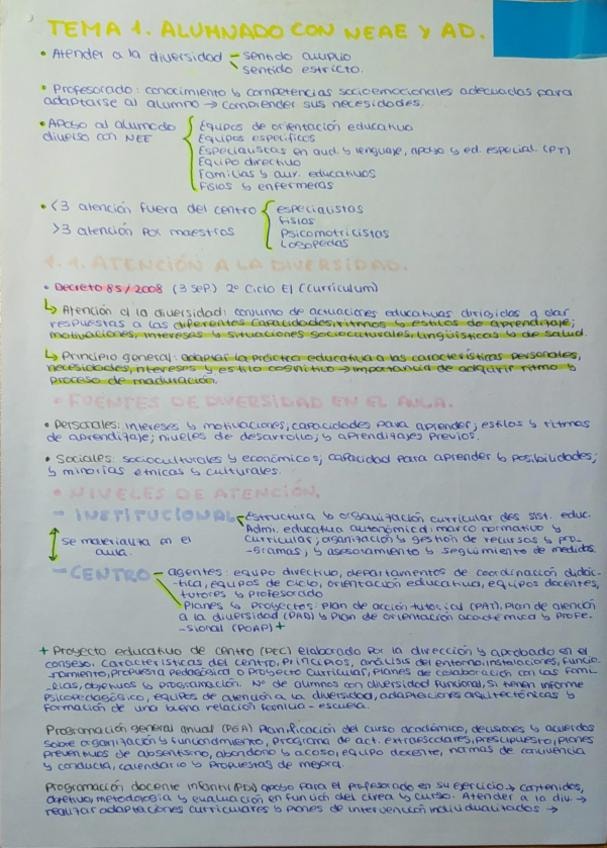 TEMA 1. ALUMNADO CON NEAE Y AD.
• Atender a la diversidad - sentido amplio
sentido estricto.
• Profesorado: conocimiento y competencias socioemocionales adecuadas para
adaptarse al alumno → comprender sus necesidades.
• Apoyo al alumnado
diverso con NEE
Equipos de orientación educativa
Equipos específicos
Especialistas en aud. y lenguaje, apoyo y ed. especial. (PT)
Equipo directivo
Familias y aux. educativos
Fisios y enfermeras
• <3 atención fuera del centro
>3 atención por maestros
especialistas
fisios
Psicomotricistas
Logopedas
1.1. ATENCIÓN A LA DIVERSIDAD.
• Decreto 85/2008 (3 SEP.) 2º Ciclo EI (Curriculum)
↳ Atención a la diversidad: conjunto de actuaciones educativas dirigidas a dar
respuestas a las diferentes capacidades, ritmos y estilos de aprendizaje;
motivaciones, intereses y situaciones socioculturales, lingüísticas y de salud.
↳ Principio general: adaptar la práctica educativa a las características personales,
necesidades, intereses y estilo cognitivo → importancia de adquirir ritmo y
proceso de maduración.
• FUENTES DE DIVERSIDAD EN EL AULA.
• Personales: intereses y motivaciones; capacidades para aprender; estilos y ritmos
de aprendizaje; niveles de desarrollo; y aprendizajes previos.
• Sociales: socioculturales y económicos; capacidad para aprender y posibilidades;
y minorías étnicas y culturales.
• NIVELES DE ATENCIÓN.
- INSTITUCIONAL
Estructura y organización curricular des sist. educ.
Admi. educativa autonómica: marco normativo y
curricular; organización y gestión de recursos y pro-
-gramas; y asesoramiento y seguimiento de medidas.
se materializa en el
aula.
- CENTRO - agentes: equipo directivo, departamentos de coordinación didác-
-tica, equipos de ciclo, orientación educativa, equipos docentes,
tutores y profesorado
Planes y Proyectos: Plan de acción tutorial (PAT), Plan de atención
a la diversidad (PAD) y Plan de orientación académica y profe-
-sional (POAP) +
+ Proyecto educativo de centro (PEC) elaborado por la dirección y aprobado en el
consejo. Características del centro, Principios, análisis del entorno, instalaciones, funcio-
-namiento, propuesta pedagógica o Proyecto curricular, planes de colaboración con las fami-
-lias, objetivos y programación. Nº de alumnos con diversidad funcional, si tienen informe
psicopedagógico, equipos de atención a la diversidad, adaptaciones arquitectónicas y
formación de una buena relación familia - escuela.
Programación general anual (PGA) Planificación del curso académico, decisiones y acuerdos
sobre organización y funcionamiento, programa de act. extraescolares, presupuesto, planes
preventivos de absentismo, abandono y acoso, equipo docente, normas de convivencia
y conducta, calendario y propuestas de mejora.
Programación docente infantil (PDI) apoyo para el profesorado en su ejercicio → contenidos,
objetivo, metodología y evaluación en función del área y curso. Atender a la div. →
realizar adaptaciones curriculares y planes de intervención individualizados →